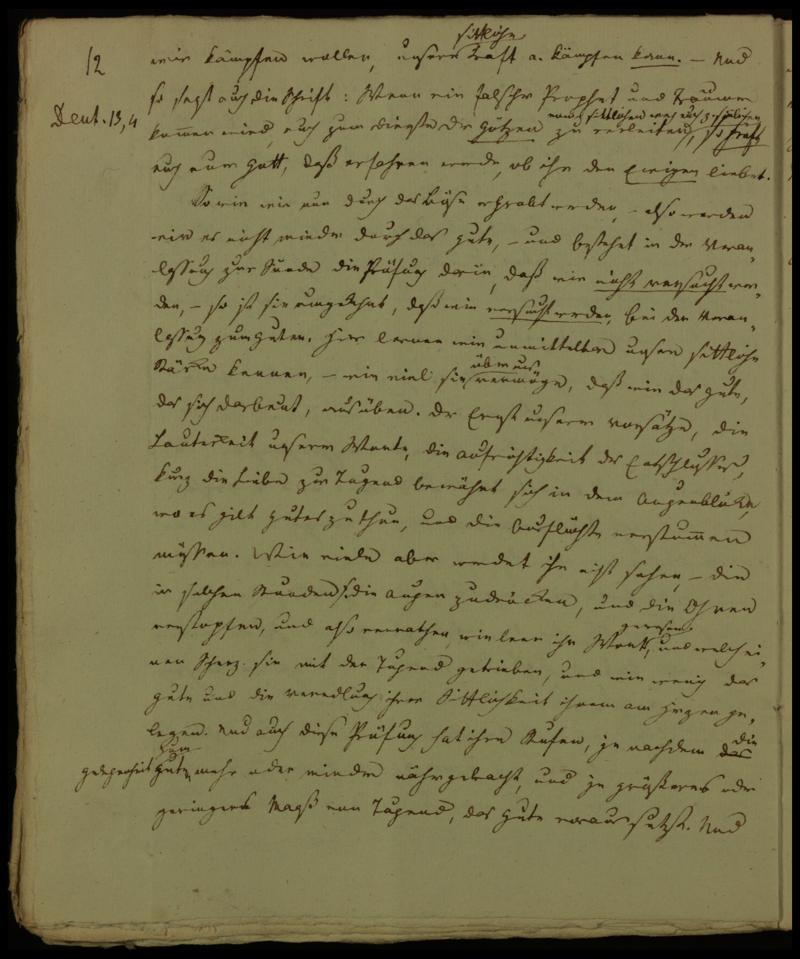 12
sittliche
wir kämpfen wollen, unsere Kraft a. kämpfen kann. – Und
so sagt auch die Schrift: Wenn ein falscher Prophet und Träumer
Deut. 13, 4
kommen wird, euch zum Dienste der Götzen zu verleiten, so prüft
euch euer Gott, daß erfahren werde, ob ihr den Ewigen liebet.
So wie wir nun durch das Böse erprobt werden, – also werden
wir es nicht minder durch das Gute, – und besteht in der Veran-
lassung zur Sünde die Prüfung darin, daß wir nicht versucht wer-
den, – so ist sie umgekehrt, daß wir versucht werden, bei der Veran-
lassung zum Guten. Hier lernen wir unmittelbar unsere sittliche
Stärke kennen, – wie viel sie über uns vermöge, daß wir das Gute,
das sich darbeut, ausüben. Der Ernst unserer Vorsätze, die
Lauterkeit unserer Worte, die Aufrichtigkeit der Entschlüsse,
kurz die Liebe zur Tugend bewährt sich in dem Augenblicke,
wo es gilt Gutes zu thun, und die Ausflüchte verstummen
müssen. Wie viele aber werdet ihr nicht sehen, – die
in solchen Stunden die Augen zudrücken, und die Ohren
verstopfen, und also verrathen, wie leer ihr Wort gewesen, und welch ei-
nen Scherz sie mit der Tugend getrieben, und wie wenig das
Gute und die Veredlung ihrer Sittlichkeit ihnen am Herzen ge-
legen. Und auch diese Prüfung hat ihre Stufen, je nachdem die
Gelegenheit zum Guten mehr oder minder nähergebracht, und je größeres oder
geringeres Maaß von Tugend, das Gute voraussetzt. Und